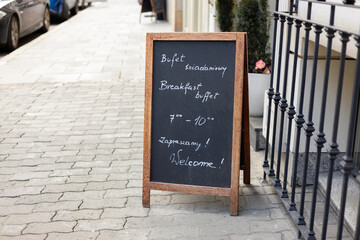 Bufet
śniadaniowy
Breakfast
buffet
7⁰⁰ - 10⁰⁰
Zapraszamy !
Welcome !